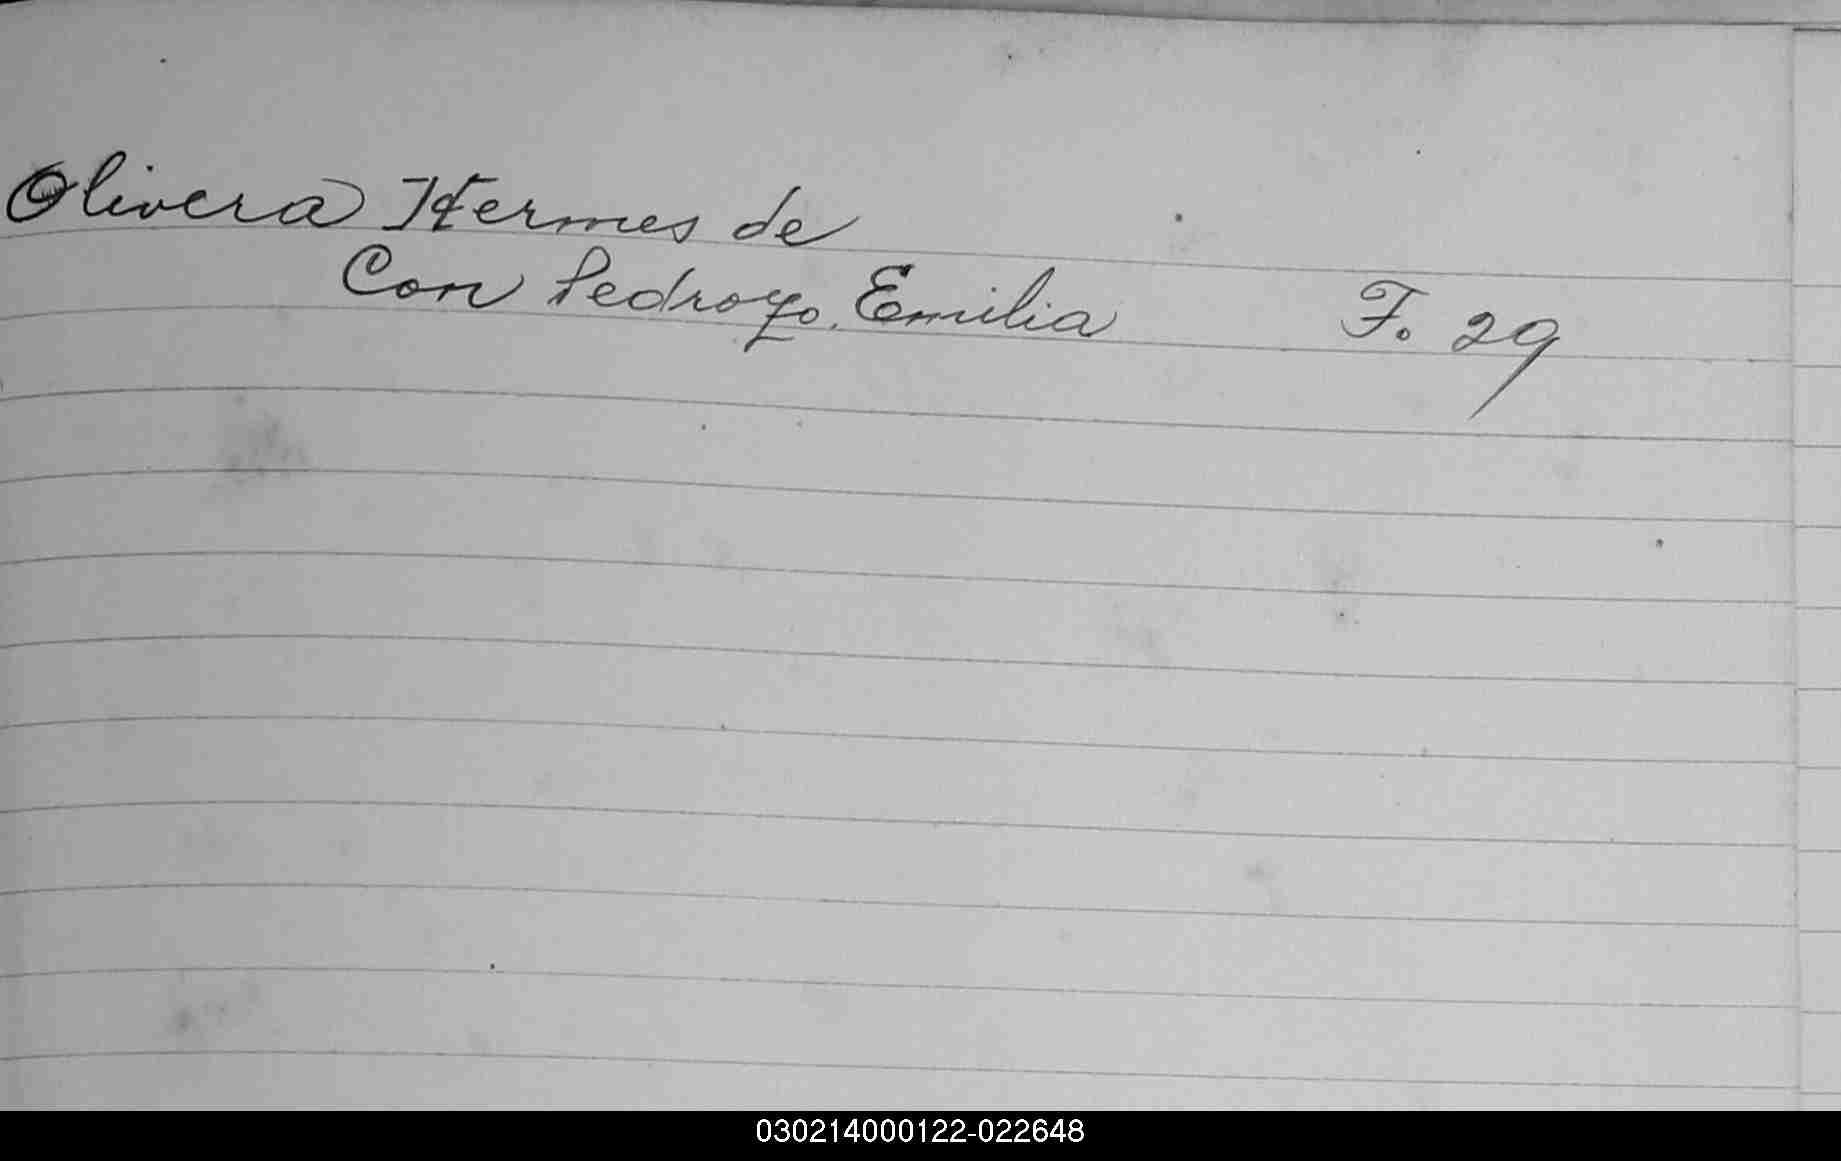 Olivera Hermes de
Con Pedrozo, Emilia F. 29
030214000122-022648